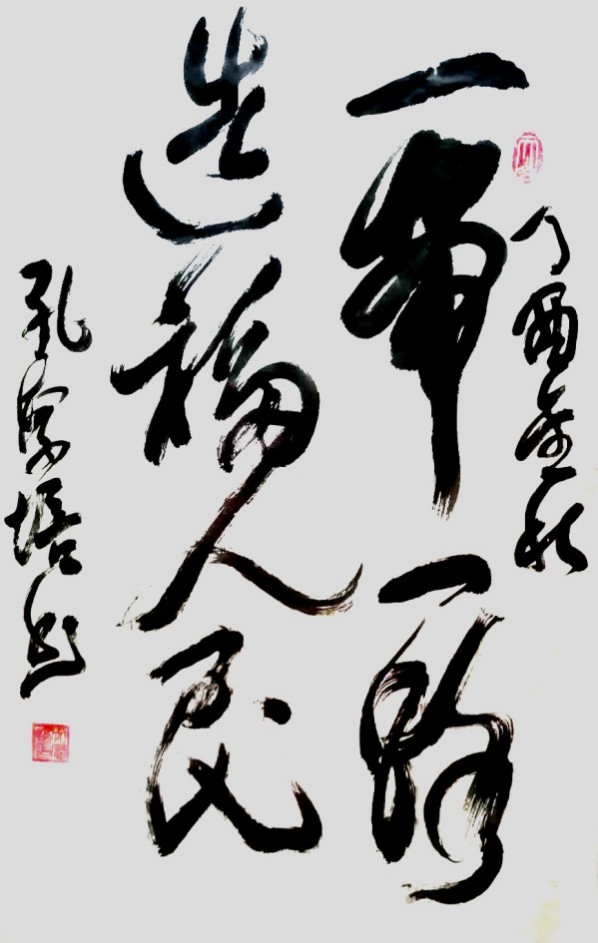 丁酉年秋
一带一路
造福人民
孔学培书